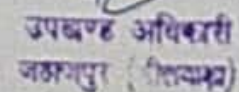 उपखण्ड अधिकारी
जहाजपुर (भीलवाड़ा)